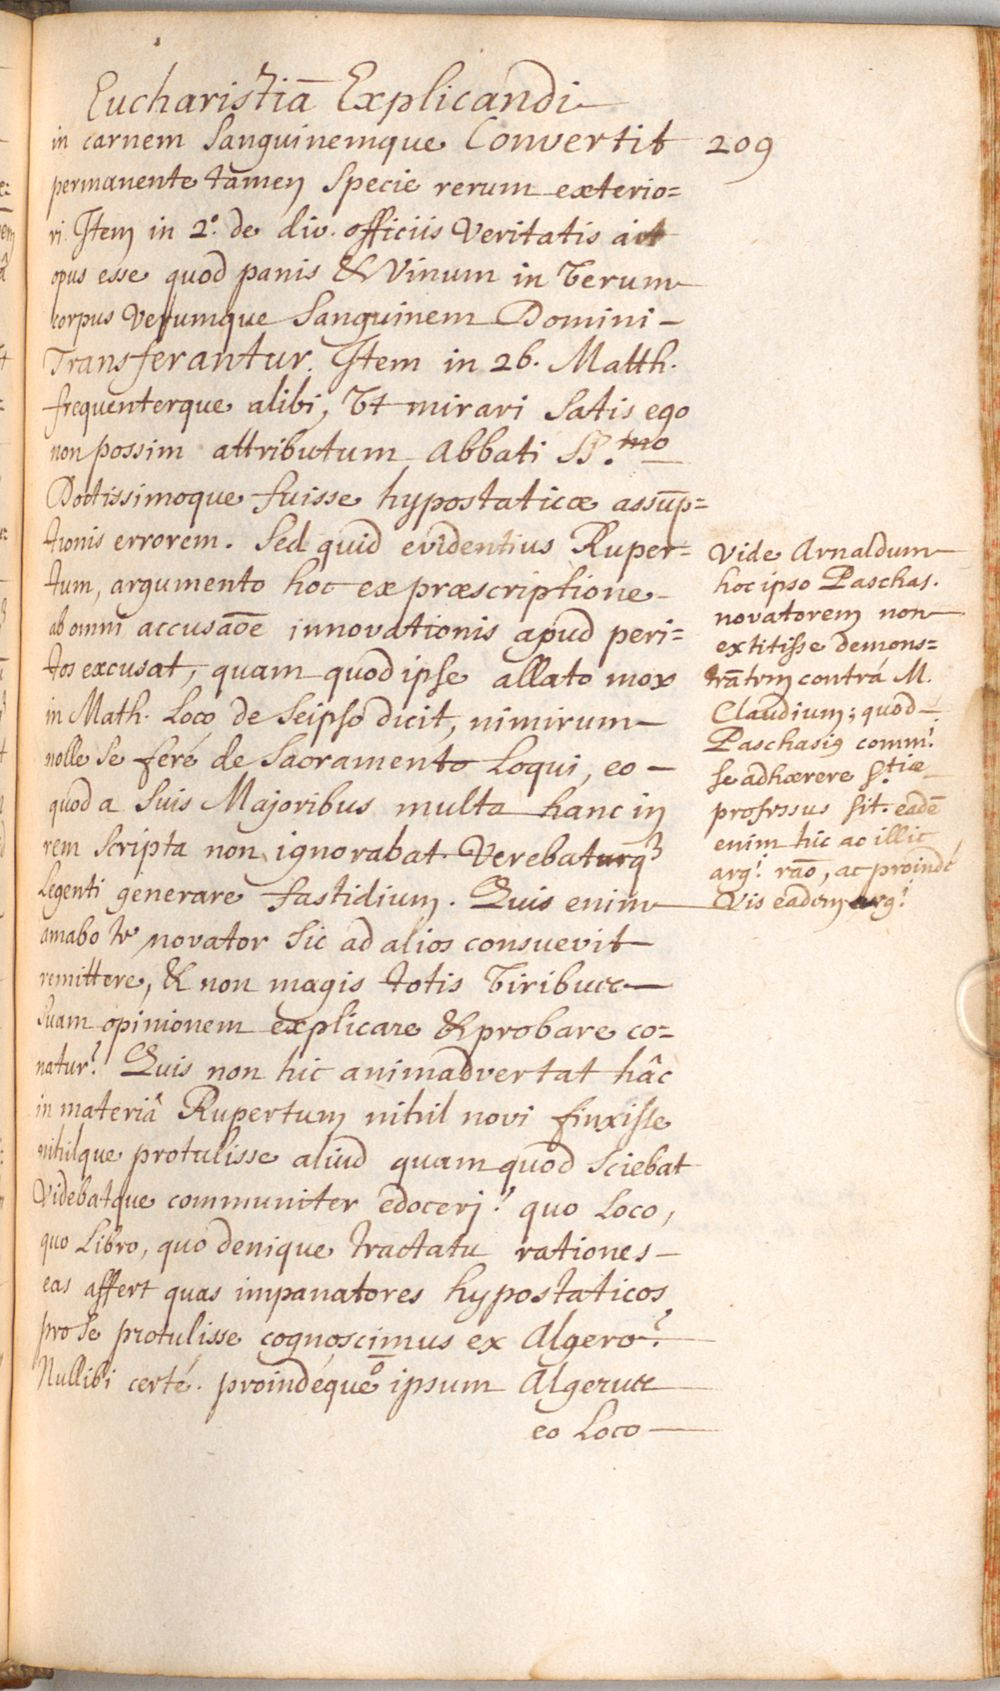 Eucharistiā Explicandi
in carnem Sanguinemque Convertit
209
permanente tamen Specie rerum exterio=
ri. Item in 2.º de div. officiis Veritatis ait
opus esse quod panis & Vinum in Verum
corpus Verumque Sanguinem Domini
Transferantur. Item in 26. Matth.
frequenterque alibi, Vt mirari Satis ego
non possim attributum Abbati SS.mo
Doctissimoque fuisse hypostaticæ assūp=
tionis errorem. Sed quid evidentius Ruper=
tum, argumento hoc ex præscriptione
ab omni accusaōe innovationis apud peri=
tos excusat, quam quod ipse allato mox
in Math. Loco de Seipso dicit, nimirum
nolle Se feré de Sacramento Loqui, eo
quod a Suis Majoribus multa hanc in
rem Scripta non ignorabat. Verebaturq3
Legenti generare fastidium. Quis enim
amabo te, novator Sic ad alios consuevit
remittere, & non magis totis Viribus
Suam opinionem explicare & probare co=
natur? Quis non hic animadvertat hâc
in materiâ Rupertum nihil novi finxisse
nihilque protulisse aliud quam quod Sciebat
Videbatque communiter edoceri? quo Loco,
quo Libro, quo denique tractatu rationes
eas affert quas impanatores hypostaticos
pro Se protulisse cognoscimus ex Algero?
Nullibi certé. proindéque ipsum Algerus
eo Loco
Vide Arnaldum
hoc ipso Paschas.
novatorem non
extitisse demons=
trātem contrá M.
Claudium; quod
Paschasig comm.i
se adhærere S.tiæ
professus sit. eadē
enim hic ac illic
arg.i raō, ac proindé
Vis eadem arg.i